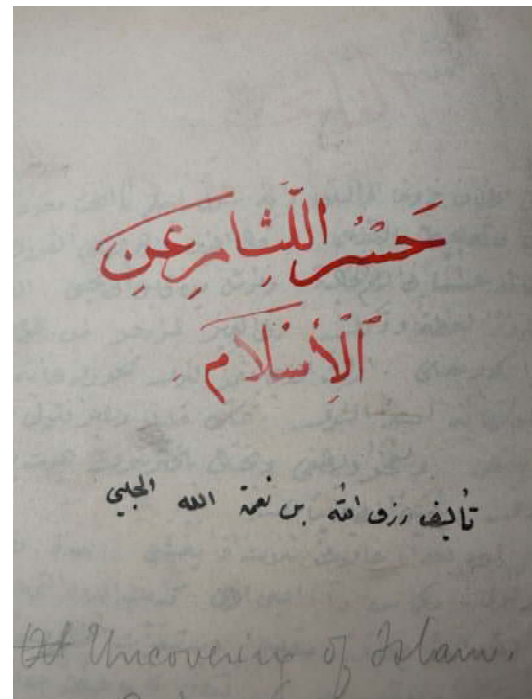 حَسْرُ اللِّثَامِ عَنِ
اَلْاِسْلَامِ
تأليف رزق الله بن نعمة الله الحلبي
Uncovering of Islam.